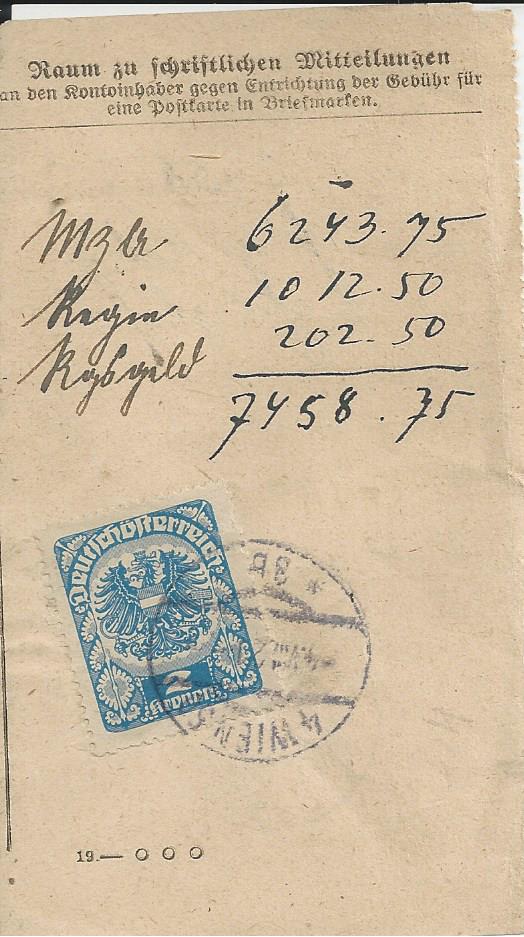 Raum zu schriftlichen Mitteilungen
an den Kontoinhaber gegen Entrichtung der Gebühr für
eine Postkarte in Briefmarken.
6243.75
Regie 1012.50
202.50
7458.75
Deutschösterreich
2
Kronen
8a *
4 WIEN
19.— O O O